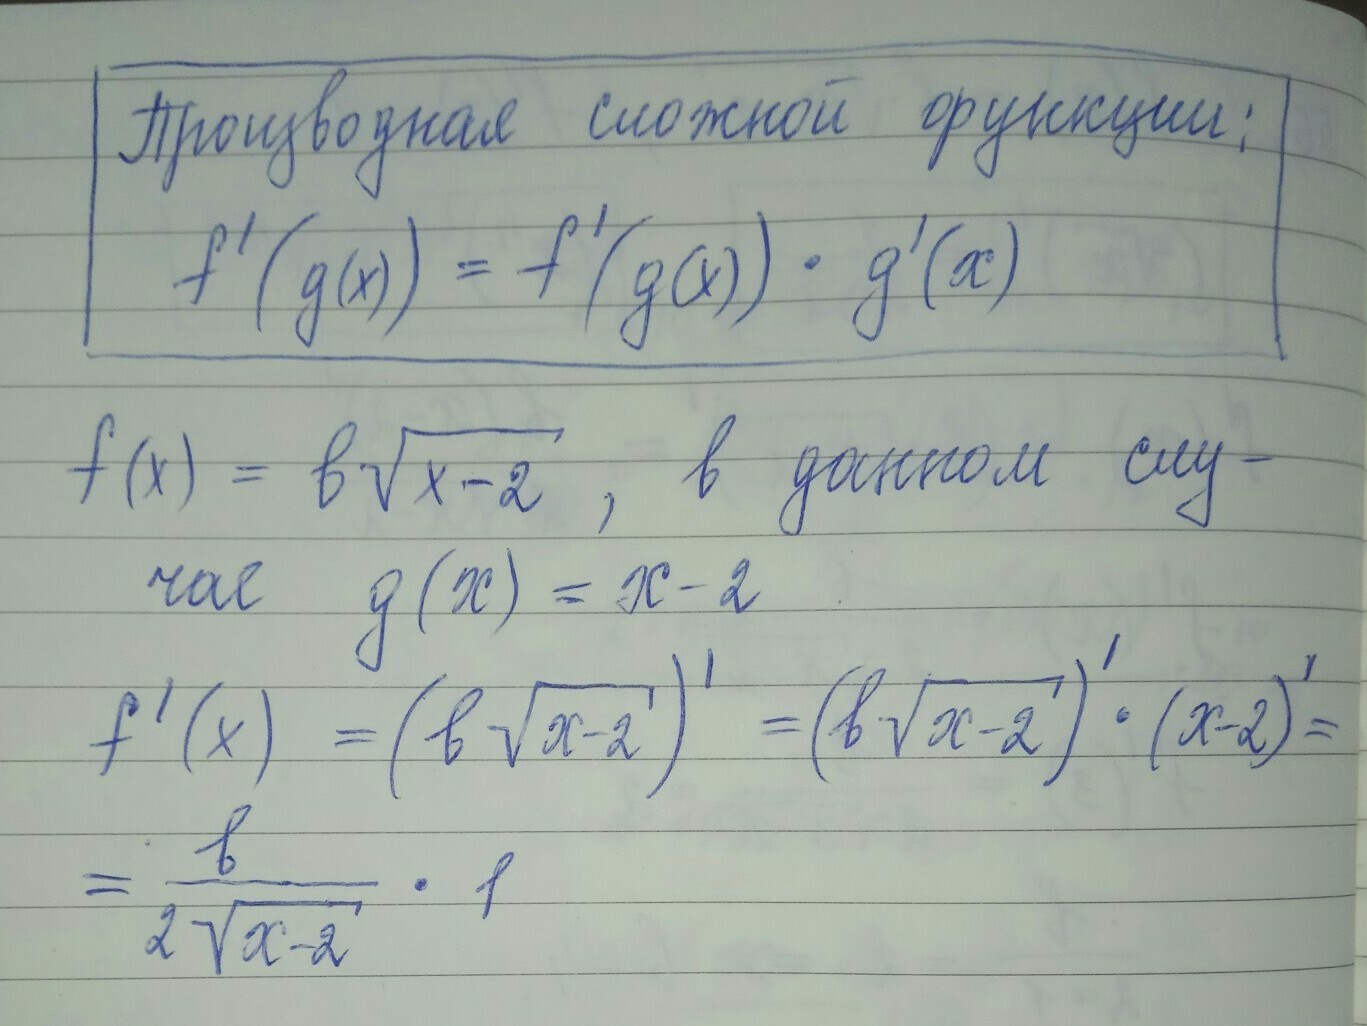 Производная сложной функции:
f'(g(x)) = f'(g(x)) · g'(x)
f(x) = b√x-2, в данном слу-
чае g(x) = x-2
f'(x) = (b√x-2)' = (b√x-2)' · (x-2)' =
= b/2√x-2 · 1